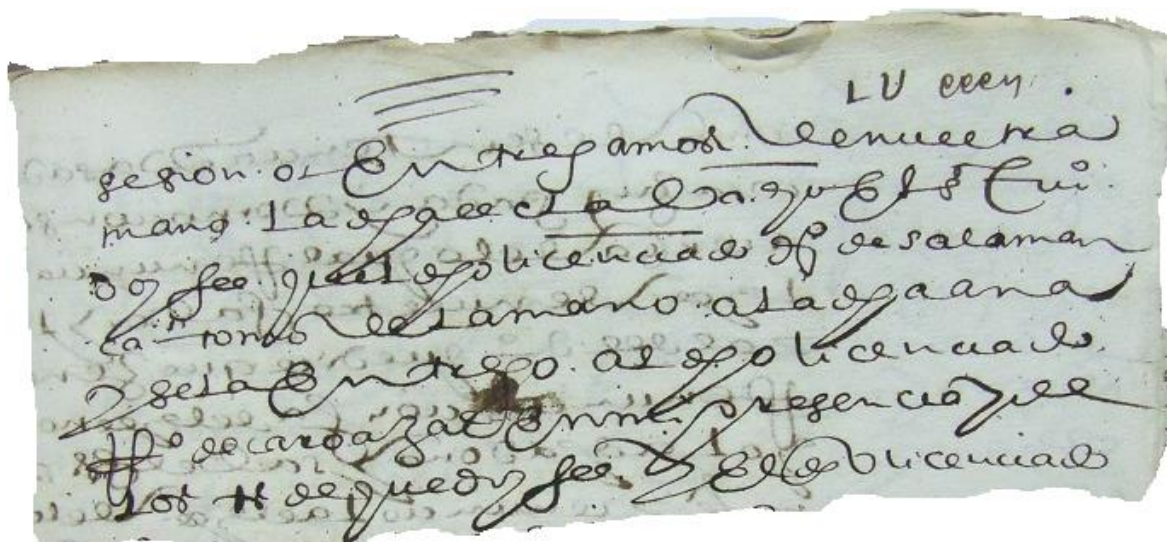 LV
sesion os Entregamos de nuestra
mano. la dha esclaba. Yo El s.
doy fee que el dho licenciado dgo de salaman
ca tomo de la mano a la dha ana
y se la Entrego. al dho licenciado
po de carbaxal En mi presencia y de
los ts de que doy fee y El dho licenciado